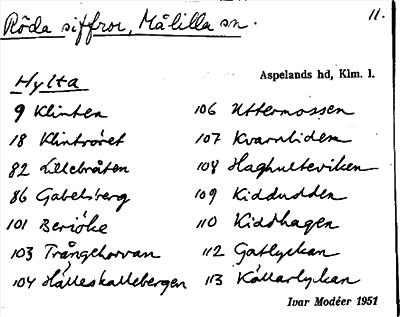 Röda siffror, Målilla sn. 11.
Aspelands hd, Klm. l.
Hylta
9 Klinten
18 Klintröret
82 Lillebråten
86 Gabelsberg
101 Beriöke
103 Trångehorvan
104 Hälleskallebergen
106 Uttermossen
107 Kvarnliden
108 Haghulteviken
109 Kiddudden
110 Kiddhagen
112 Gatlyckan
113 Källarlyckan
Ivar Modéer 1951